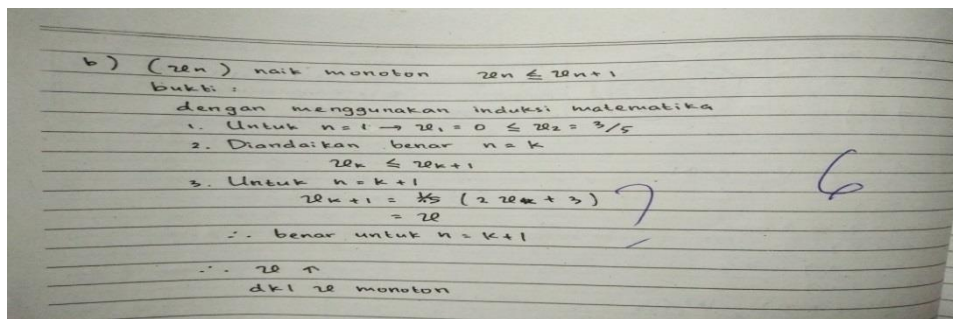 b) (xn) naik monoton xn ≤ xn+1
bukti :
dengan menggunakan induksi matematika
1. Untuk n = 1 → x1 = 0 ≤ x2 = 3/5
2. Diandaikan benar n = k
xk ≤ xk+1
3. Untuk n = k + 1
xk+1 = 1/5 (2 xk + 3) ?
= x
∴ benar untuk n = k+1
6
∴ x ↑
dkl x monoton